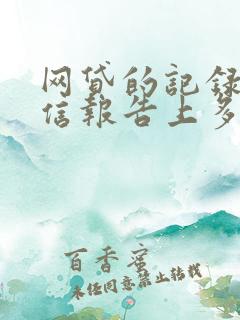 网贷的記録
信報告上多
百香蜜
未经同意禁止转载